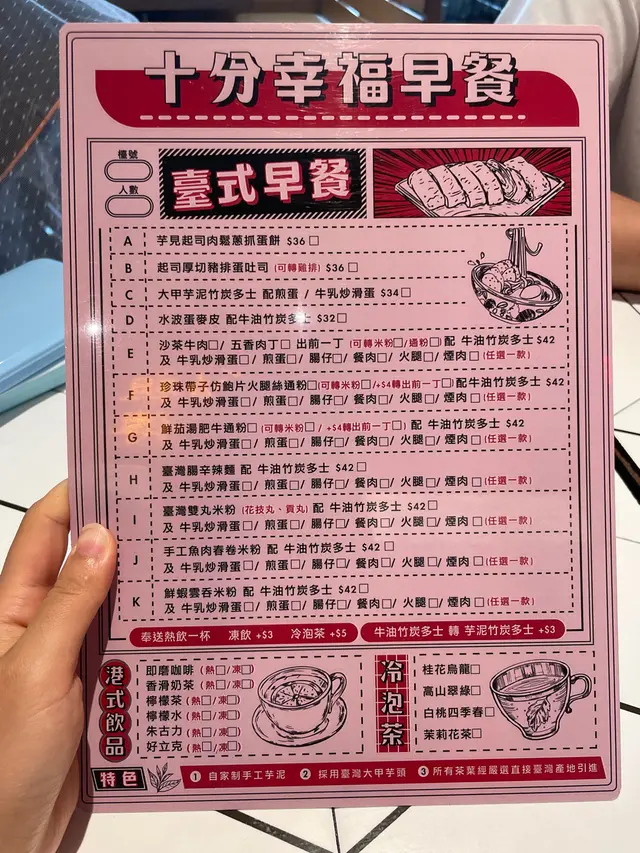 十分幸福早餐
檯號
人數
臺式早餐
A 芋見起司肉鬆蔥抓蛋餅 $36 □
B 起司厚切豬排蛋吐司 (可轉雞排) $36 □
C 大甲芋泥竹炭多士 配煎蛋 / 牛乳炒滑蛋 $34 □
D 水波蛋麥皮 配牛油竹炭多士 $32 □
E 沙茶牛肉□/ 五香肉丁□ 出前一丁 (可轉米粉□/通粉□) 配 牛油竹炭多士 $42
及 牛乳炒滑蛋□/ 煎蛋□/ 腸仔□/ 餐肉□/ 火腿□/ 煙肉 □ (任選一款)
F 珍珠帶子仿鮑片火腿絲通粉□(可轉米粉□/+$4轉出前一丁□) 配牛油竹炭多士 $42
及 牛乳炒滑蛋□/ 煎蛋□/ 腸仔□/ 餐肉□/ 火腿□/ 煙肉 □ (任選一款)
G 鮮茄湯肥牛通粉□ (可轉米粉□ / +$4轉出前一丁□) 配 牛油竹炭多士 $42
及 牛乳炒滑蛋□/ 煎蛋□/ 腸仔□/ 餐肉□/ 火腿□/ 煙肉 □ (任選一款)
H 臺灣腸辛辣麵 配 牛油竹炭多士 $42 □
及 牛乳炒滑蛋□/ 煎蛋□/ 腸仔□/ 餐肉□/ 火腿□/ 煙肉 □ (任選一款)
I 臺灣雙丸米粉 (花技丸、貢丸) 配 牛油竹炭多士 $42 □
及 牛乳炒滑蛋□/ 煎蛋□/ 腸仔□/ 餐肉□/ 火腿□/ 煙肉 □ (任選一款)
J 手工魚肉春卷米粉 配 牛油竹炭多士 $42 □
及 牛乳炒滑蛋□/ 煎蛋□/ 腸仔□/ 餐肉□/ 火腿□/ 煙肉 □ (任選一款)
K 鮮蝦雲吞米粉 配 牛油竹炭多士 $42 □
及 牛乳炒滑蛋□/ 煎蛋□/ 腸仔□/ 餐肉□/ 火腿□/ 煙肉 □ (任選一款)
奉送熱飲一杯 凍飲 +$3 冷泡茶 +$5
牛油竹炭多士 轉 芋泥竹炭多士 +$3
港式飲品
即磨咖啡 (熱□/凍□)
香滑奶茶 (熱□/凍□)
檸檬茶 (熱□/凍□)
檸檬水 (熱□/凍□)
朱古力 (熱□/凍□)
好立克 (熱□/凍□)
冷泡茶
桂花烏龍□
高山翠綠□
白桃四季春□
茉莉花茶□
特色
1 自家制手工芋泥 2 採用臺灣大甲芋頭 3 所有茶葉經嚴選直接臺灣產地引進